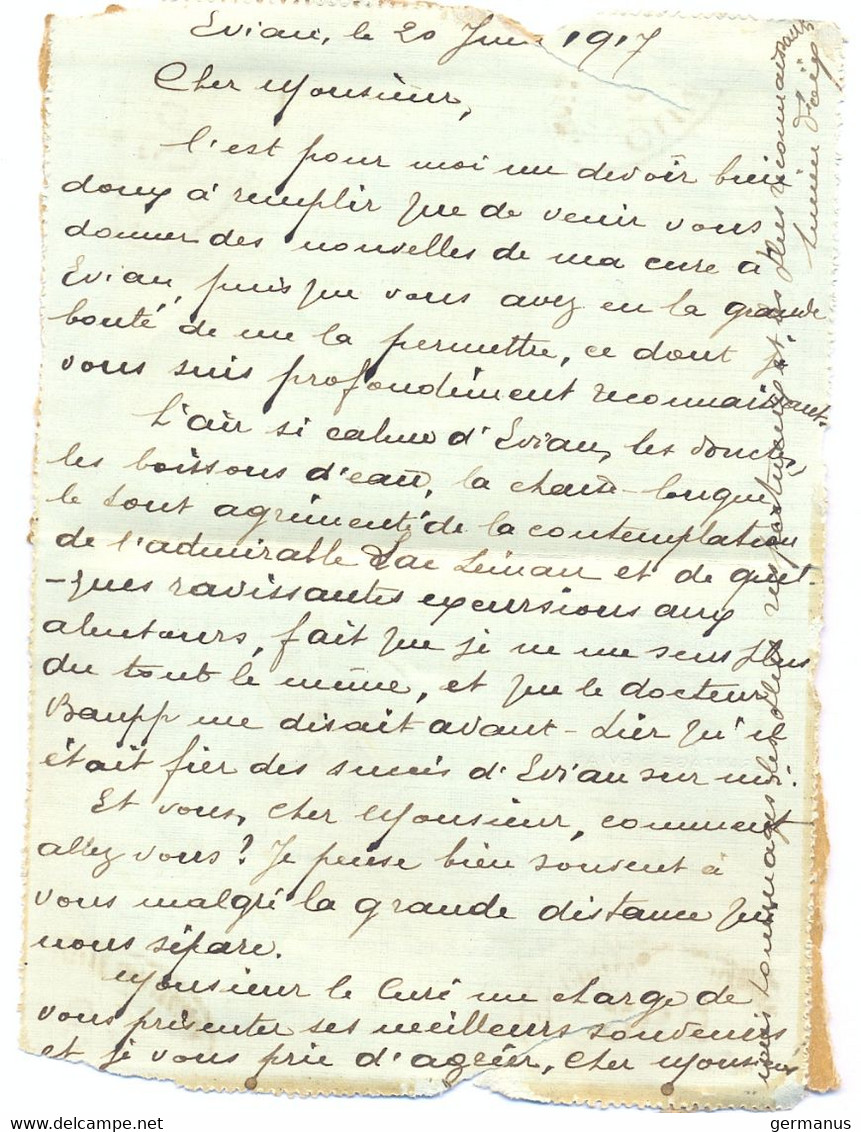 Evian, le 20 Juin 1917
Cher Monsieur,
C'est pour moi un devoir bien
doux à remplir que de venir vous
donner des nouvelles de ma cure à
Evian, puisque vous avez eu la grande
bonté de me la permettre, ce dont je
vous suis profondément reconnaissant.
L'air si calme d'Evian, les douches,
les boissons d'eau, la chaise-longue,
le tout agrémenté de la contemplation
de l'admirable Lac Léman et de quel-
-ques ravissantes excursions aux
alentours, fait que je ne me sens plus
du tout le même, et que le docteur
me disait avant-hier qu'il
était fier des succès d'Evian sur moi.
Et vous, cher Monsieur, comment
allez vous? Je pense bien souvent à
vous malgré la grande distance qui
nous sépare.
Monsieur le Curé me charge de
vous présenter ses meilleurs souvenirs
et je vous prie d'agréer, cher Monsieur
mes hommages les plus respectueux et les plus reconnaissants
Lucien
germanus